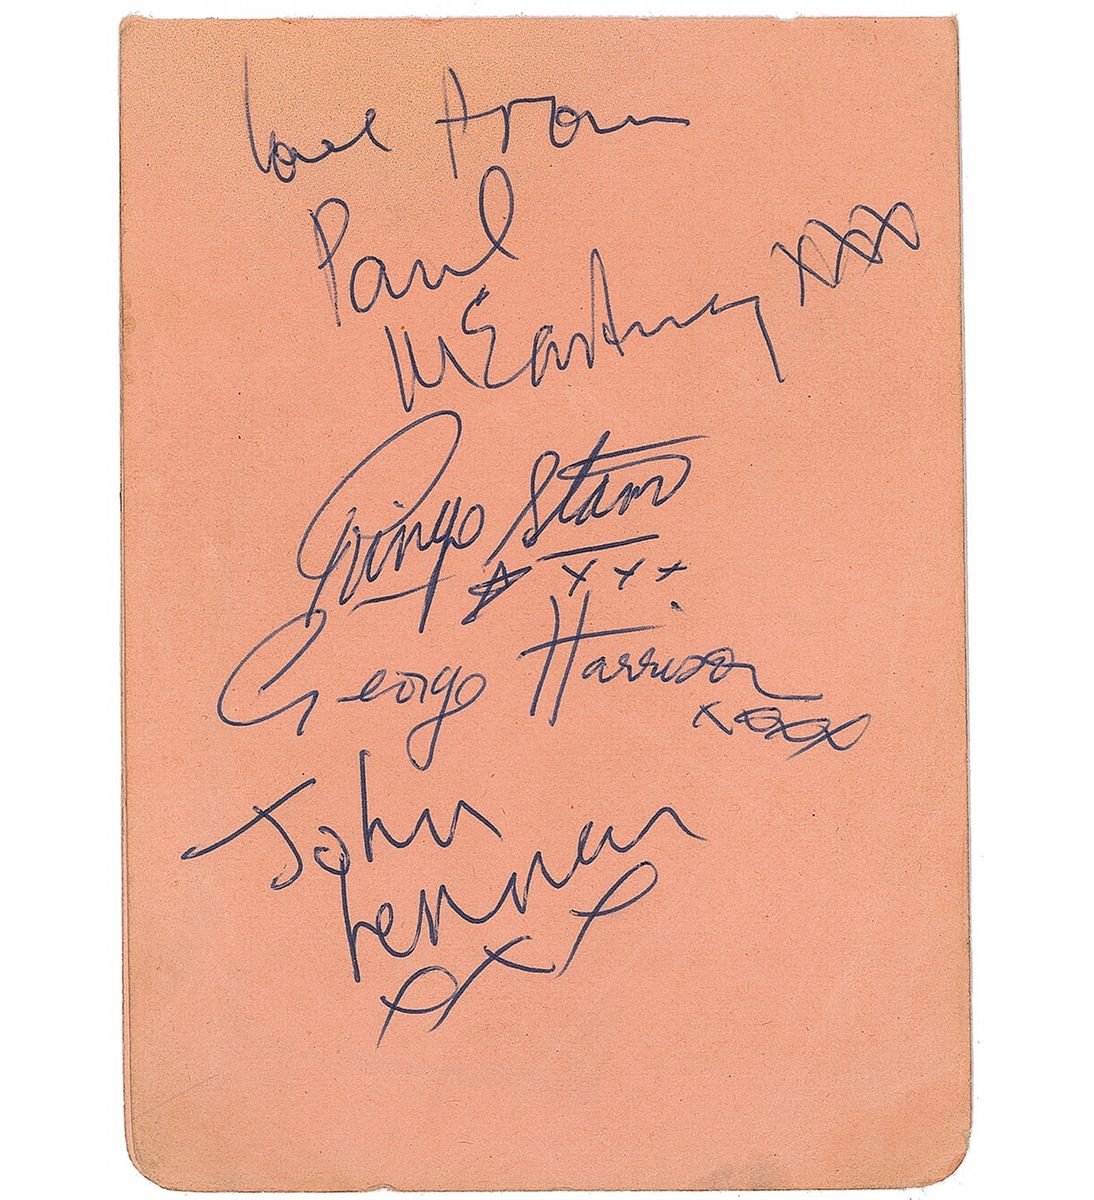 love from
Paul
McCartney xxx
Ringo Starr
xxx
George Harrison
xxxx
John
Lennon
xxx